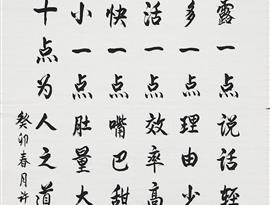 露一点说话轻
多一点理由少
活一点效率高
快一点嘴巴甜
小一点肚量大
十点为人之道
癸卯春月许